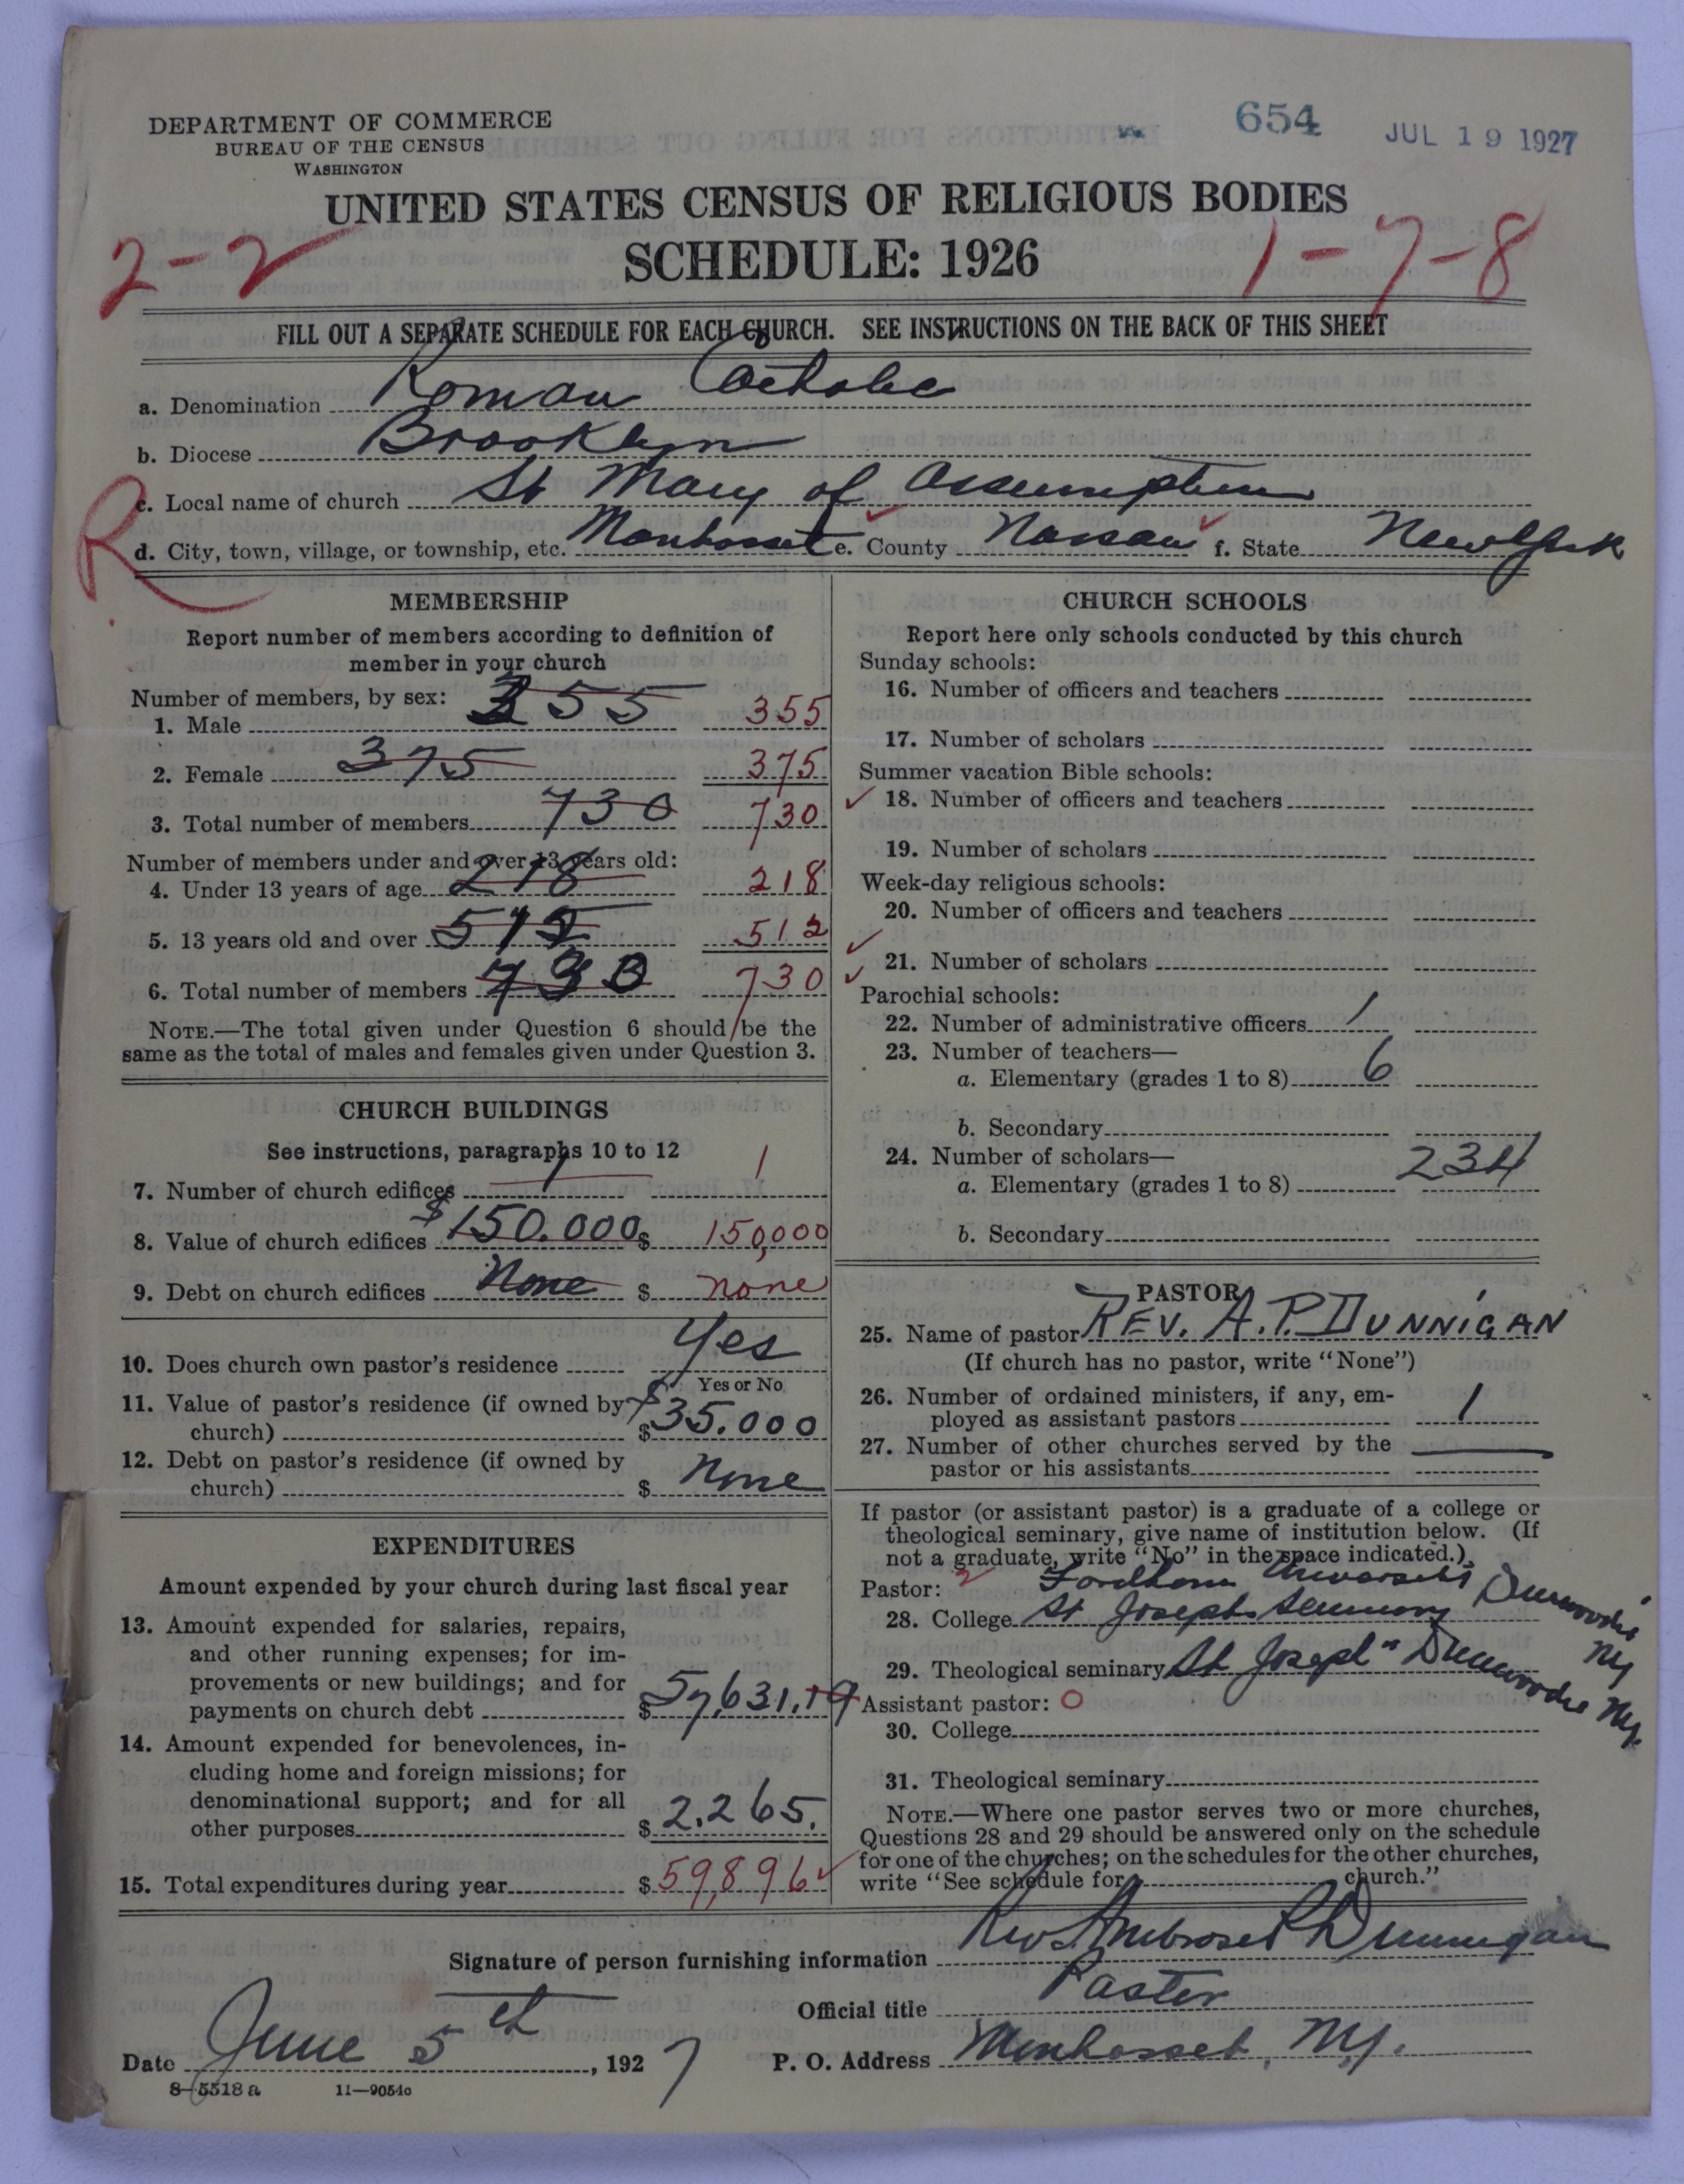 DEPARTMENT OF COMMERCE
BUREAU OF THE CENSUS
WASHINGTON
654
JUL 19 1927
UNITED STATES CENSUS OF RELIGIOUS BODIES
SCHEDULE: 1926
2-2
1-7-8
FILL OUT A SEPARATE SCHEDULE FOR EACH CHURCH. SEE INSTRUCTIONS ON THE BACK OF THIS SHEET
a. Denomination Roman Catholic
b. Diocese Brooklyn
R
c. Local name of church St Mary of Assumption
d. City, town, village, or township, etc. Manhasset e. County Nassau f. State New York
MEMBERSHIP
Report number of members according to definition of
member in your church
Number of members, by sex:
1. Male 355 355
2. Female 375 375
3. Total number of members 730 730
Number of members under and over 13 years old:
4. Under 13 years of age 218 218
5. 13 years old and over 512 512
6. Total number of members 730 730
NOTE.—The total given under Question 6 should be the
same as the total of males and females given under Question 3.
CHURCH BUILDINGS
See instructions, paragraphs 10 to 12
7. Number of church edifices 1 1
8. Value of church edifices $150.000 $ 150,000
9. Debt on church edifices None $ none
10. Does church own pastor's residence Yes
Yes or No
11. Value of pastor's residence (if owned by
church) $ $35.000
12. Debt on pastor's residence (if owned by
church) $ None
EXPENDITURES
Amount expended by your church during last fiscal year
13. Amount expended for salaries, repairs,
and other running expenses; for im-
provements or new buildings; and for
payments on church debt $57,631.19
14. Amount expended for benevolences, in-
cluding home and foreign missions; for
denominational support; and for all
other purposes $2,265.
15. Total expenditures during year $59,896
CHURCH SCHOOLS
Report here only schools conducted by this church
Sunday schools:
16. Number of officers and teachers
17. Number of scholars
Summer vacation Bible schools:
18. Number of officers and teachers
19. Number of scholars
Week-day religious schools:
20. Number of officers and teachers
21. Number of scholars
Parochial schools:
22. Number of administrative officers 1
23. Number of teachers—
a. Elementary (grades 1 to 8) 6
b. Secondary
24. Number of scholars—
a. Elementary (grades 1 to 8) 234
b. Secondary
PASTOR
25. Name of pastor REV. A.P. DUNNIGAN
(If church has no pastor, write "None")
26. Number of ordained ministers, if any, em-
ployed as assistant pastors 1
27. Number of other churches served by the
pastor or his assistants
If pastor (or assistant pastor) is a graduate of a college or
theological seminary, give name of institution below. (If
not a graduate, write "No" in the space indicated.)
Pastor: 2 Fordham University
28. College St Josephs Seminary Dunwoodie NY
29. Theological seminary St Joseph's Dunwoodie NY.
Assistant pastor: O
30. College
31. Theological seminary
NOTE.—Where one pastor serves two or more churches,
Questions 28 and 29 should be answered only on the schedule
for one of the churches; on the schedules for the other churches,
write "See schedule for church."
Signature of person furnishing information Rev Ambrose P Dunnigan
Official title Pastor
Date June 5th, 1927
P. O. Address Manhasset, NY.
8—5518 a 11—9054c